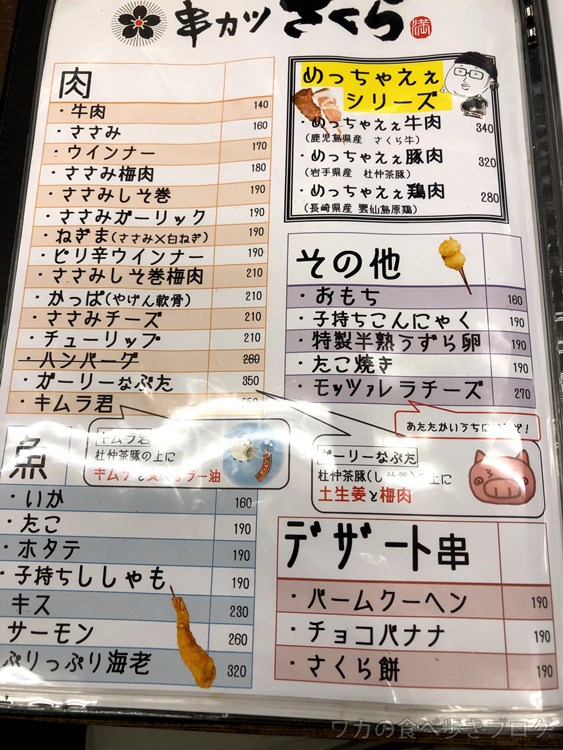 串カツ さくら 満
肉
・牛肉 140
・ささみ 160
・ウインナー 170
・ささみ梅肉 180
・ささみしそ巻 190
・ささみガーリック 190
・ねぎま(ささみ×白ねぎ) 190
・ピリ辛ウインナー 190
・ささみしそ巻梅肉 210
・かっぱ(やげん軟骨) 210
・ささみチーズ 210
・チューリップ 210
・ハンバーグ 260
・ガーリーなぶた 350
・キムラ君
キムラ君
杜仲茶豚の上に
ラー油
魚
・いか 160
・たこ 190
・ホタテ 190
・子持ちししゃも 190
・キス 230
サーモン 260
ぷりっぷり海老 320
めっちゃええ
シリーズ
・めっちゃええ牛肉 340
(鹿児島県産 さくら牛)
・めっちゃええ豚肉 320
(岩手県産 杜仲茶豚)
・めっちゃええ鶏肉 280
(長崎県産 雲仙島原鶏)
その他
・おもち 160
・子持ちこんにゃく 190
・特製半熟うずら卵 190
・たこ焼き 190
・モッツァレラチーズ 270
あたたかいうちに
ガーリーなぶた
杜仲茶豚の上に
土生姜と梅肉
デザート串
・バームクーヘン 190
・チョコバナナ 190
・さくら餅 190
ワカの食べ歩きブログ